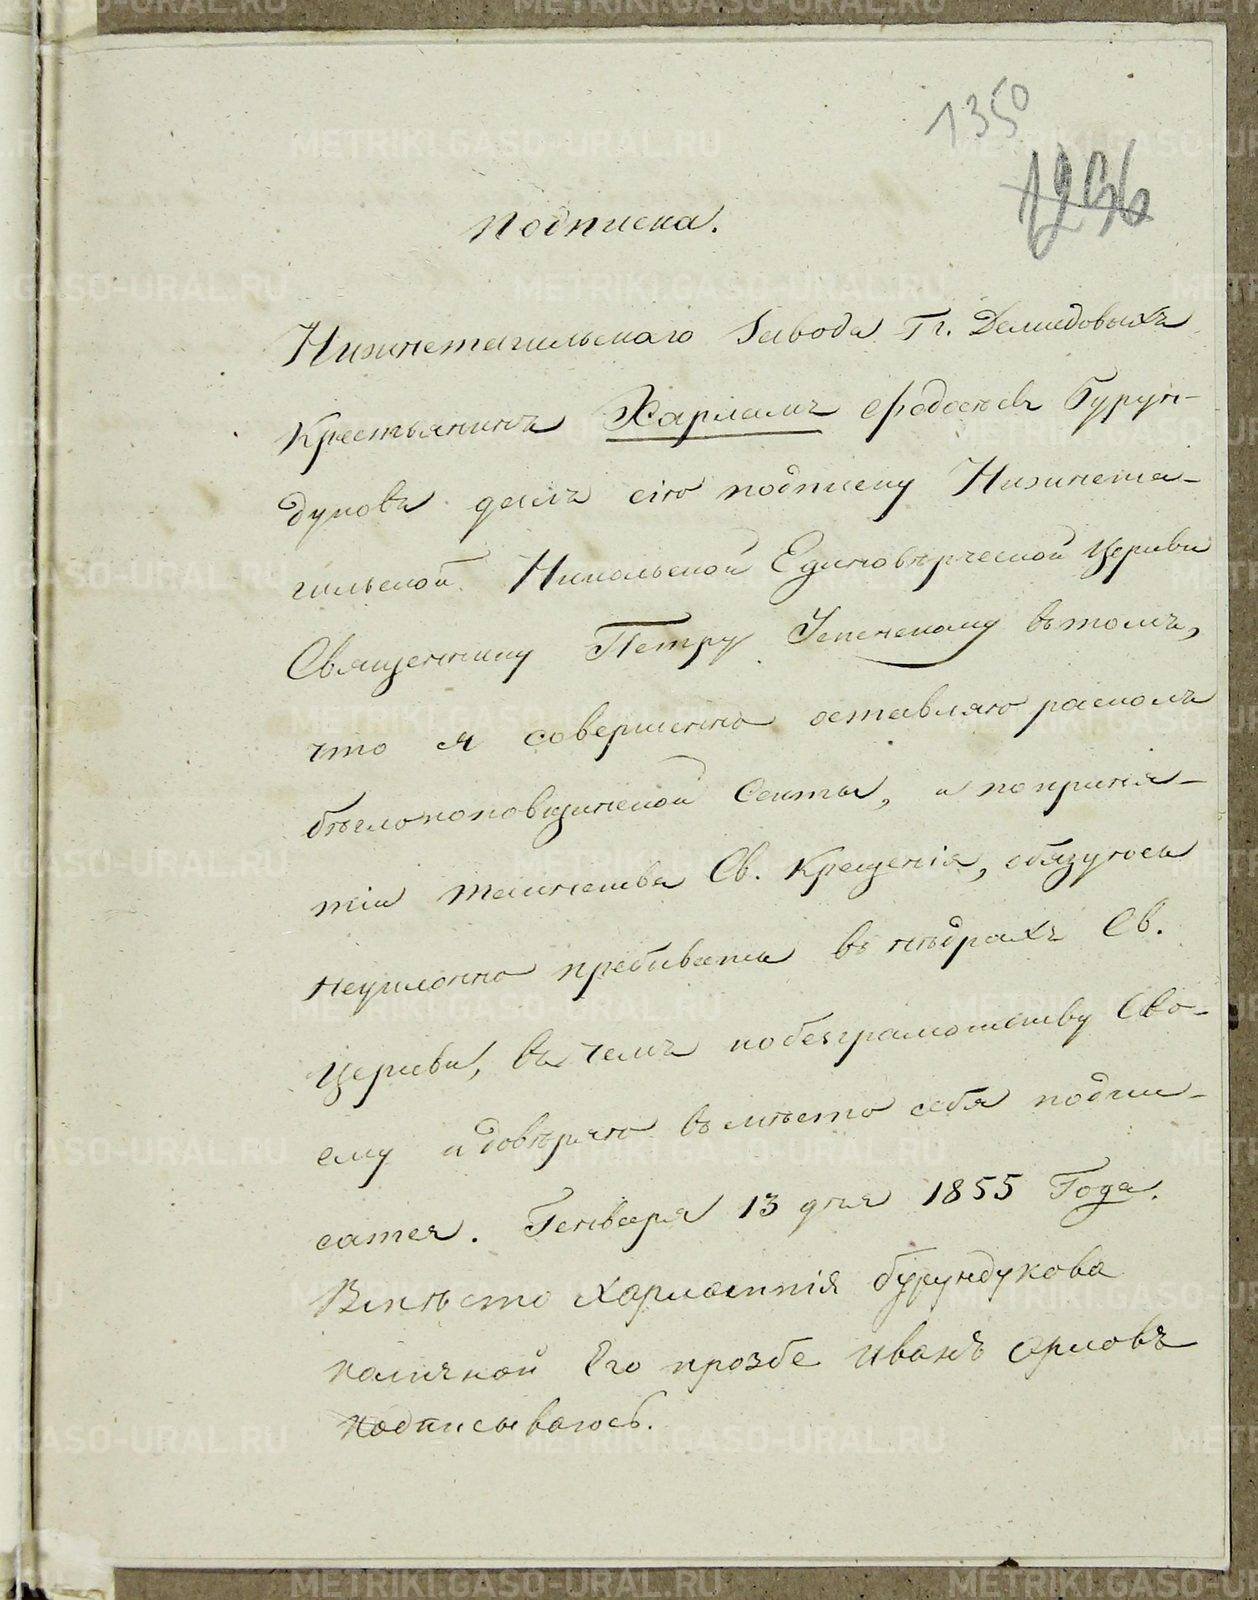 1350
1296
Подписка.
Нижнетагильскаго Завода Гг. Демидовыхъ
Крестьянинъ Харламъ Ѳедосѣевъ Бурун-
дуковъ далъ сію подписку Нижнета-
гильской Никольской Единовѣрческой Церкви
Священнику Петру Успенскому въ томъ,
что я совершенно оставляю расколъ
бѣглопоповщинской Секты, и по приня-
тіи таинства Св. Крещенія, обязуюсь
неуклонно пребывать въ нѣдрахъ Св.
Церкви, въ чемъ по безграмотству Сво-
ему и довѣряю въ мѣсто себя подпи-
сатся. Генваря 13 дня 1855 Года.
Вмѣсто Харлампія бурундукова
поличной Его прозбе иванъ орловъ
подписываюсь.
METRIKI.GASO-URAL.RU